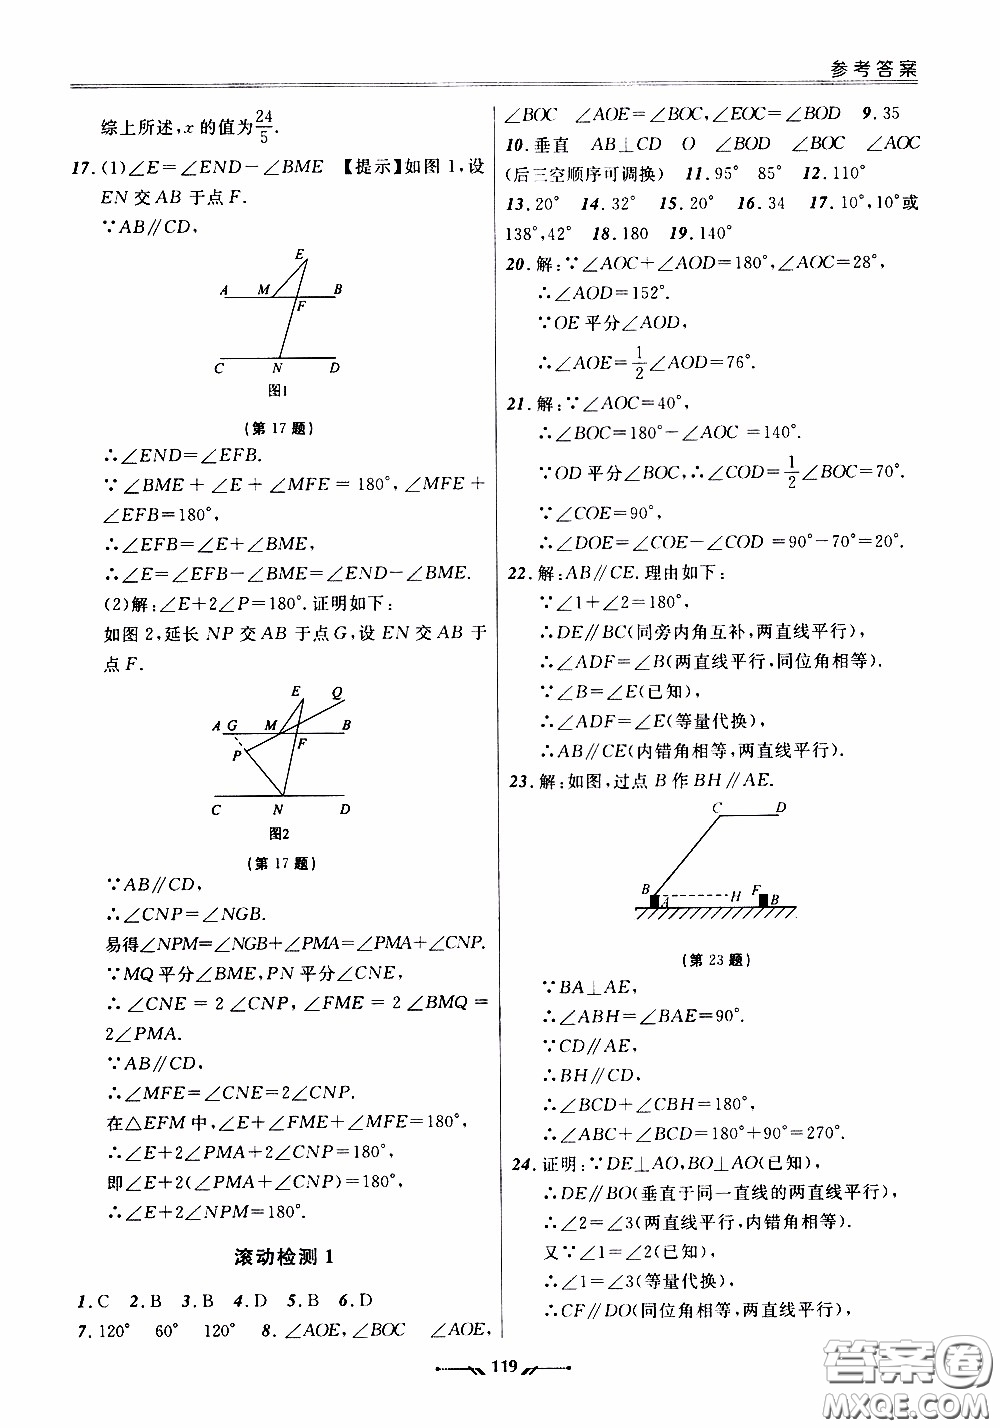 参考答案
综上所述,x 的值为24/5.
17.(1)∠E=∠END-∠BME 【提示】如图 1,设
EN 交 AB 于点 F.
∵AB∥CD,
E
A M B
F
C N D
图1
(第 17 题)
∴∠END=∠EFB.
∵∠BME+∠E+∠MFE=180°,∠MFE+
∠EFB=180°,
∴∠EFB=∠E+∠BME,
∴∠E=∠EFB-∠BME=∠END-∠BME.
(2)解:∠E+2∠P=180°.证明如下:
如图 2,延长 NP 交 AB 于点 G,设 EN 交 AB 于
点 F.
E Q
A G M B
F
P
C N D
图2
(第 17 题)
∵AB∥CD,
∴∠CNP=∠NGB.
易得∠NPM=∠NGB+∠PMA=∠PMA+∠CNP.
∵MQ 平分∠BME,PN 平分∠CNE,
∴∠CNE=2∠CNP,∠FME=2∠BMQ=
2∠PMA.
∵AB∥CD,
∴∠MFE=∠CNE=2∠CNP.
在△EFM 中,∠E+∠FME+∠MFE=180°,
∴∠E+2∠PMA+2∠CNP=180°,
即∠E+2(∠PMA+∠CNP)=180°,
∴∠E+2∠NPM=180°.
滚动检测 1
1.C 2.B 3.B 4.D 5.B 6.D
7.120° 60° 120° 8.∠AOE,∠BOC ∠AOE,
∠BOC ∠AOE=∠BOC,∠EOC=∠BOD 9.35
10.垂直 AB⊥CD O ∠BOD ∠BOC ∠AOC
(后三空顺序可调换) 11.95° 85° 12.110°
13.20° 14.32° 15.20° 16.34 17.10°,10°或
138°,42° 18.180 19.140°
20.解:∵∠AOC+∠AOD=180°,∠AOC=28°,
∴∠AOD=152°.
∵OE 平分∠AOD,
∴∠AOE=1/2∠AOD=76°.
21.解:∵∠AOC=40°,
∴∠BOC=180°-∠AOC=140°.
∵OD 平分∠BOC,∴∠COD=1/2∠BOC=70°.
∵∠COE=90°,
∴∠DOE=∠COE-∠COD=90°-70°=20°.
22.解:AB∥CE.理由如下:
∵∠1+∠2=180°,
∴DE∥BC(同旁内角互补,两直线平行),
∴∠ADF=∠B(两直线平行,同位角相等).
∵∠B=∠E(已知),
∴∠ADF=∠E(等量代换),
∴AB∥CE(内错角相等,两直线平行).
23.解:如图,过点 B 作 BH∥AE.
C D
B A H F B
(第 23 题)
∵BA⊥AE,
∴∠ABH=∠BAE=90°.
∵CD∥AE,
∴BH∥CD,
∴∠BCD+∠CBH=180°,
∴∠ABC+∠BCD=180°+90°=270°.
24.证明:∵DE⊥AO,BO⊥AO(已知),
∴DE∥BO(垂直于同一直线的两直线平行),
∴∠2=∠3(两直线平行,内错角相等).
又∵∠1=∠2(已知),
∴∠1=∠3(等量代换),
∴CF∥DO(同位角相等,两直线平行),
119
答案卷
MXQE.COM